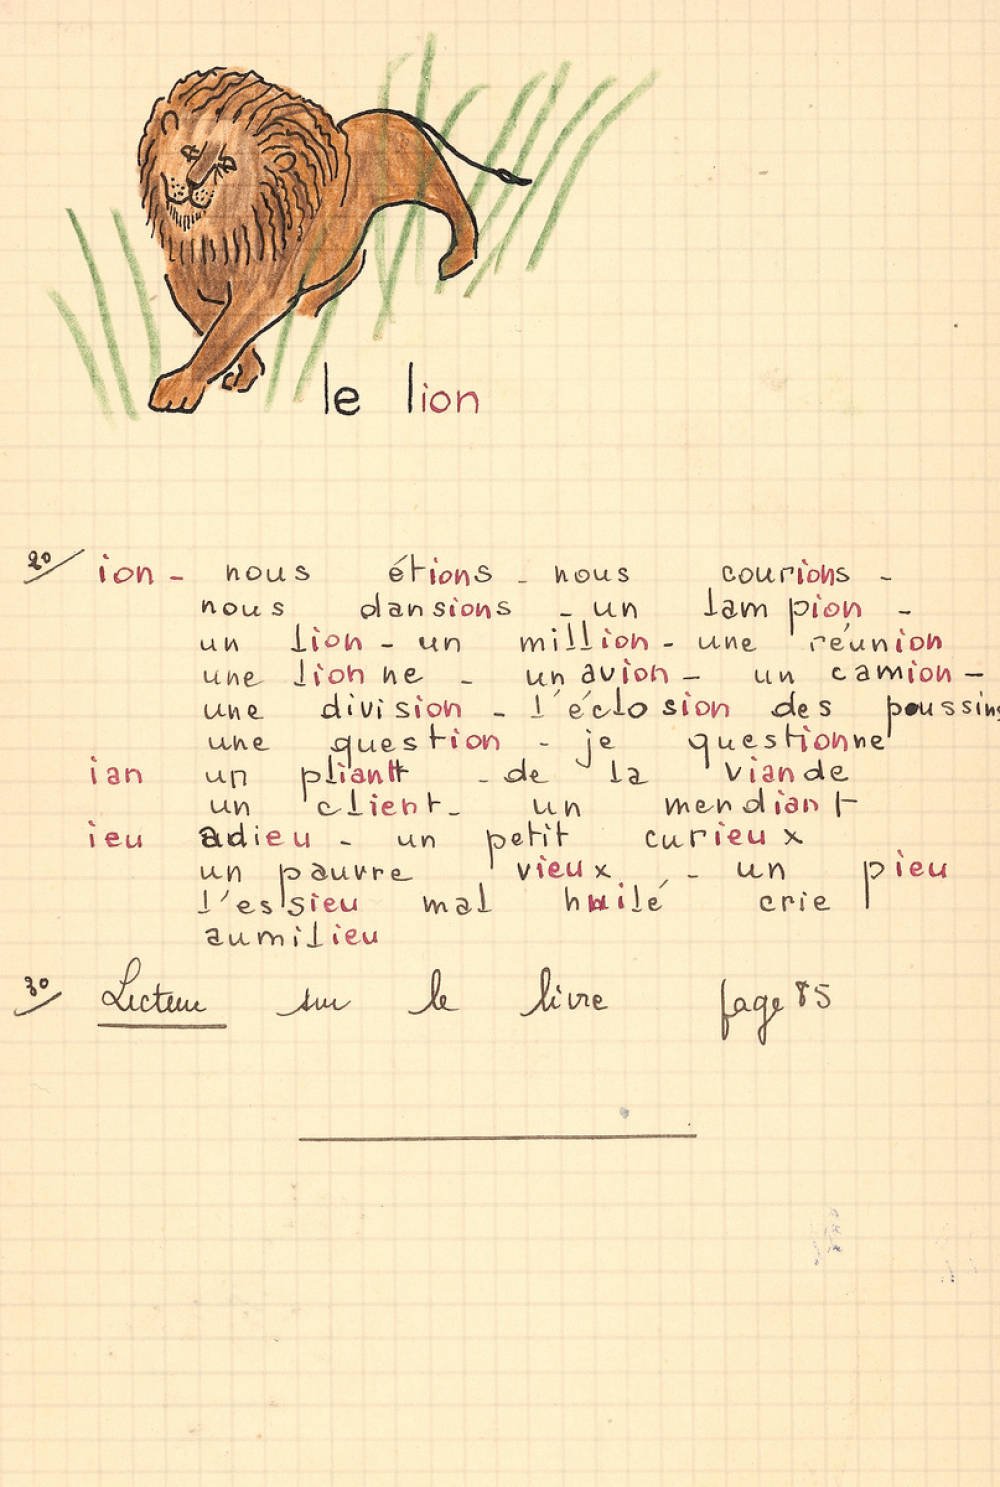 le lion
2o/ ion - nous étions - nous courions -
nous dansions - un lampion -
un lion - un million - une réunion
une lionne - un avion - un camion -
une division - l'éclosion des poussins
une question - je questionne
ian un pliant - de la viande
un client - un mendiant
ieu adieu - un petit curieux
un pauvre vieux - un pieu
l'essieu mal huilé crie
au milieu
3o/ Lecture sur le livre page 85